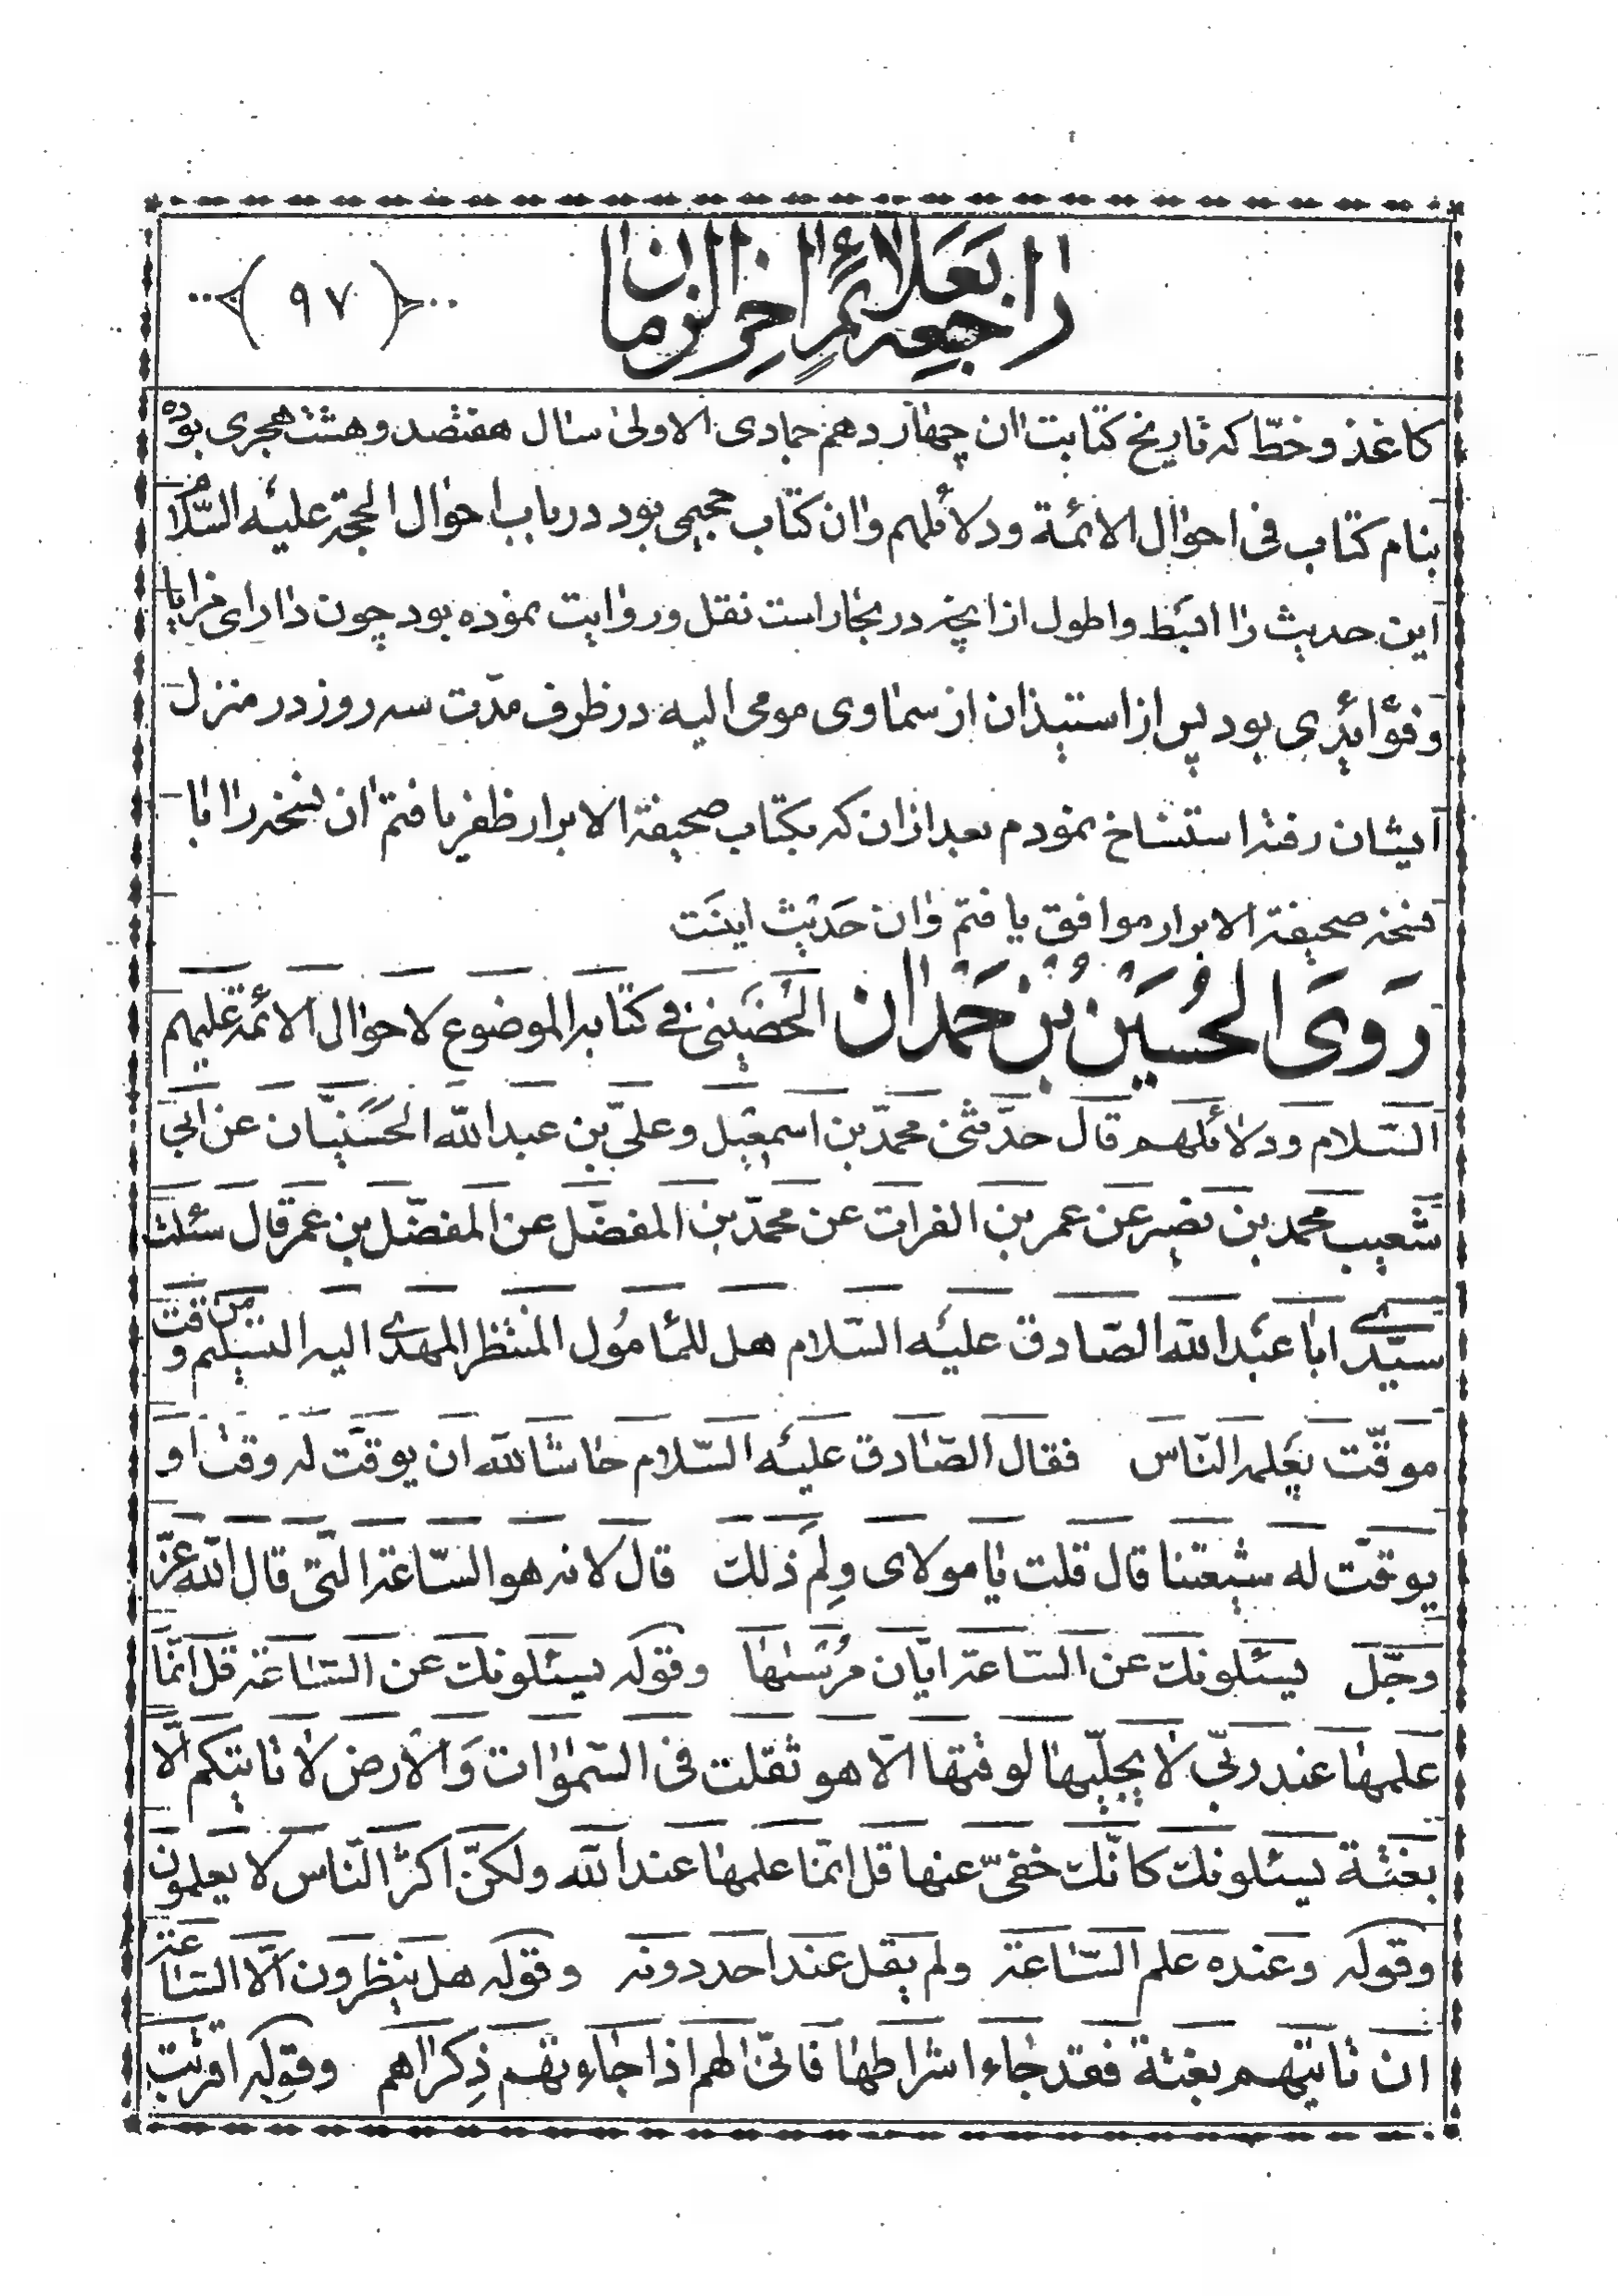 راجعه بعلائم اخر الزمان
( ۹۷ )
کاغذ و خط که تاریخ کتابت ان چهار دهم جمادی الاولی سال هفتصد و هشت هجری بوده
بنام کتاب فی احوال الائمة و دلائلهم و ان کتاب حجیمی بود در باب احوال الحجة علیه السّلام
این حدیث را ابسط و اطول از انچه در بحار است نقل و روایت نموده بود چون دارای مزایا
و فوائدی بود پس از استیذان از سماوی مومی الیه در ظرف مدّت سه روز در منزل
ایشان رفته استنساخ نمودم بعد از ان که بکتاب صحیفة الابرار ظفر یافتم ان نسخه را با
نسخه صحیفة الابرار موافق یافتم و ان حَدیث اینَت
رَوَی الحُسَین بُن حَمدان الحُضَینی فی کتابه الموضوع لاحوال الائمة علیهم
السّلام و دلائلهم قال حدّثنی محمّد بن اسمعیل و علیّ بن عبد الله الحَسَنیّان عن ابی
شعیب محمد بن نصیر عن عمر بن الفرات عن محمّد بن المفضّل عن المفضّل بن عمر قال سئلت
سیّدی ابا عبد الله الصّادق علیه السّلام هل للمامُول المنتظر المهدی الیه التسلیم من وقت
موقّت یعلمه النّاس فقال الصّادق علیه السّلام حاشا لله ان یوقّت له وقت او
یوقّت له شیعتنا قال قلت یا مولای ولِم ذلک قال لانه هو السّاعة الّتی قال الله عزّ
وجّل یسئلونک عن السّاعة ایّان مُرسٰیها وقوله یسئلونک عن السّاعة قل انّما
علمها عند ربّی لا یجلّیها لوقتها الّا هو ثقلت فی السّموات وَ الارض لا تاتیکم الّا
بغتة یسئلونک کانّک خفیّ عنها قل انّما علمها عند الله ولکنّ اکثر النّاس لا یعلمون
وقوله وعنده علم السّاعة ولم یقل عند احد دونه وقوله هل ینظرون الّا السّاعة
ان تاتیهم بغتة فقد جاء اشراطها فانّی لهم اذا جاءوتهم ذِکراهم وقوله اقتربت